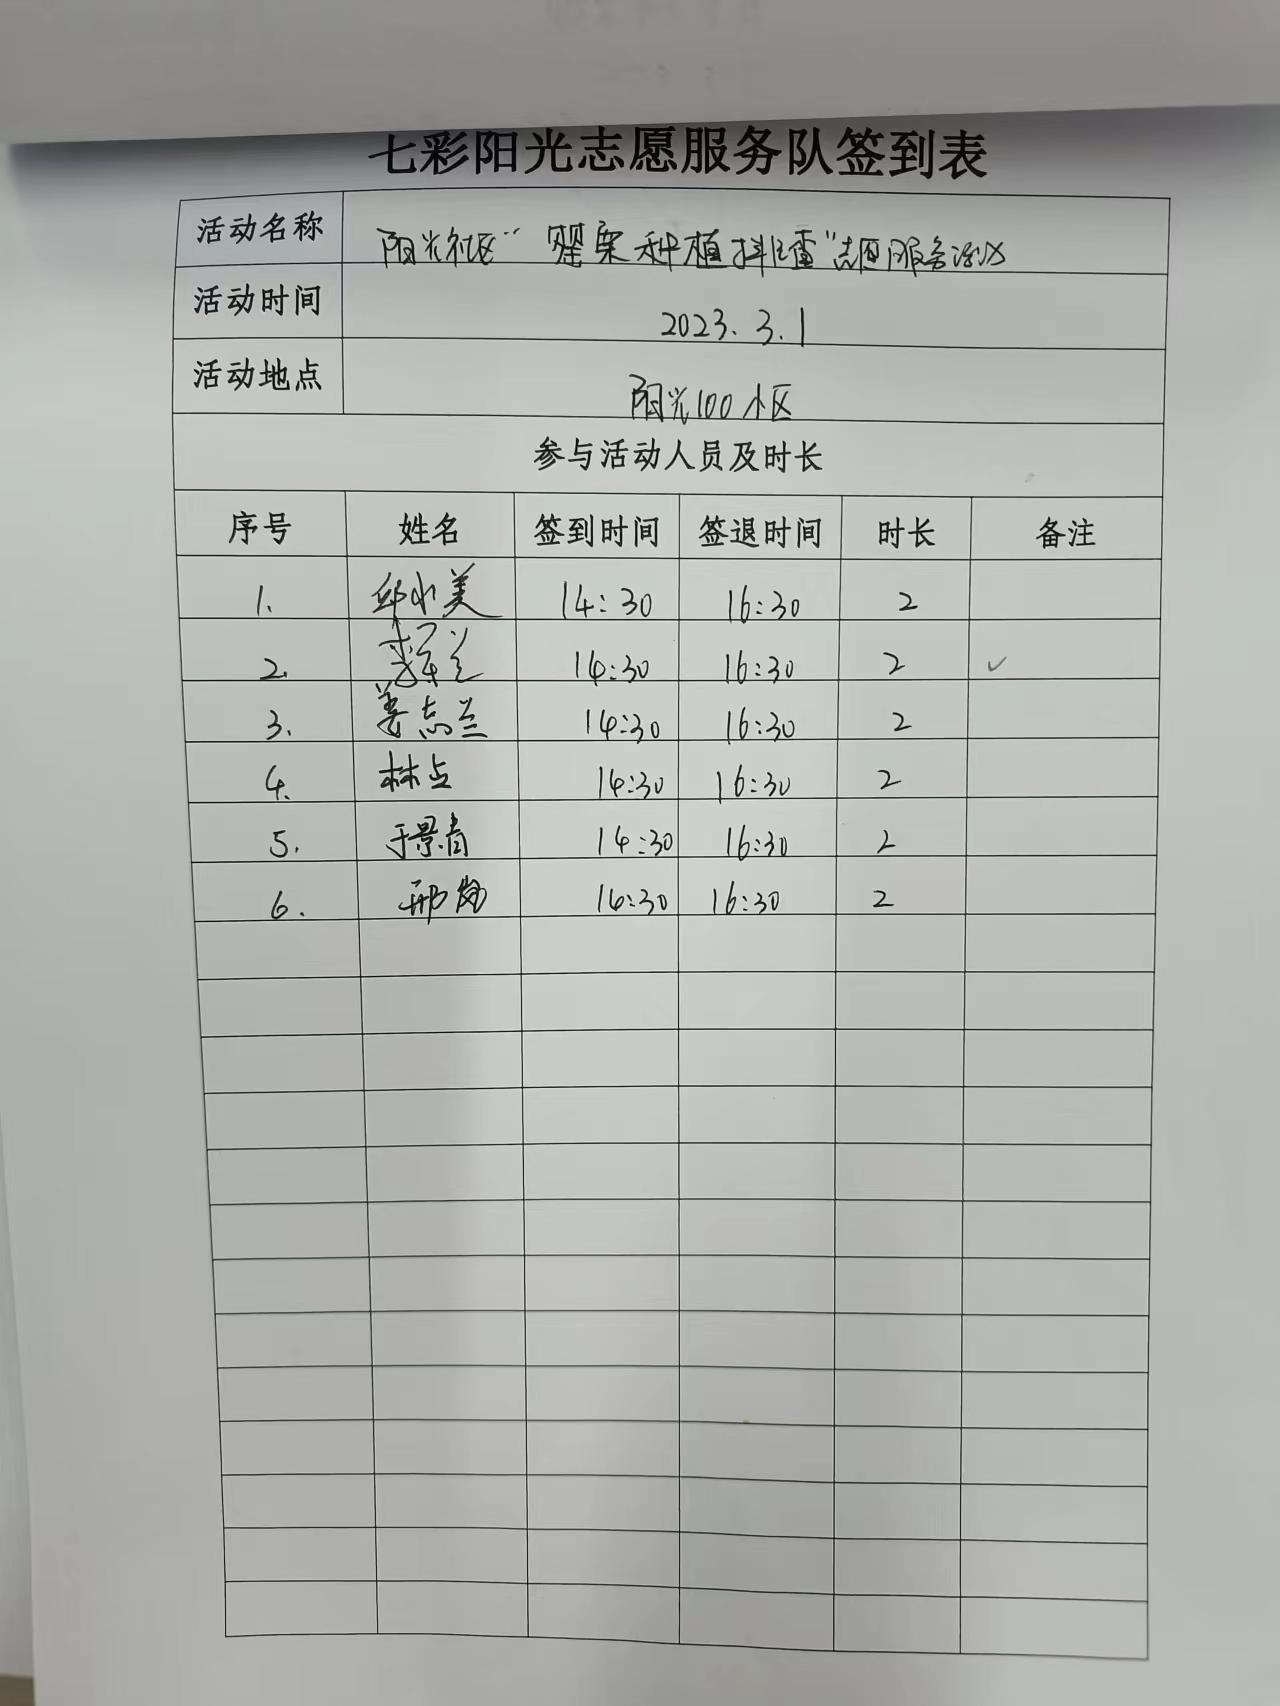 七彩阳光志愿服务队签到表
活动名称 阳光社区"罂粟种植排查"志愿服务活动
活动时间 2023.3.1
活动地点 阳光100小区
参与活动人员及时长
序号 姓名 签到时间 签退时间 时长 备注
1. 邱小美 14:30 16:30 2
2. 14:30 16:30 2 ✓
3. 姜点兰 14:30 16:30 2
4. 林点 14:30 16:30 2
5. 于景肖 14:30 16:30 2
6. 邢 14:30 16:30 2